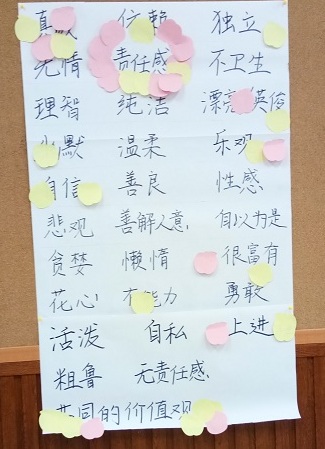 真诚 信赖 独立
无情 责任感 不卫生
理智 纯洁 漂亮/英俊
幽默 温柔 乐观
自信 善良 性感
悲观 善解人意 自以为是
贪婪 懒惰 很富有
花心 有能力 勇敢
活泼 自私 上进
粗鲁 无责任感
共同的价值观